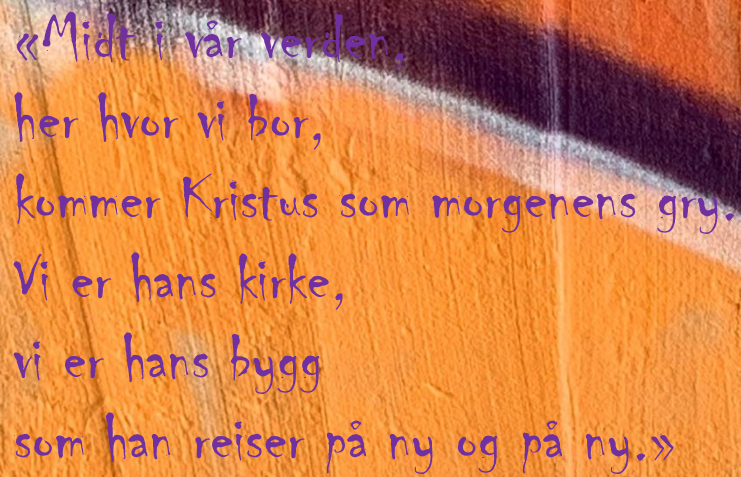 «Midt i vår verden.
her hvor vi bor,
kommer Kristus som morgenens gry.
Vi er hans kirke,
vi er hans bygg
som han reiser på ny og på ny.»